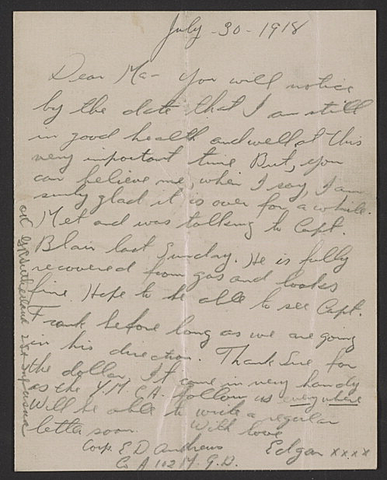 July - 30 - 1918
Dear Ma - You will notice
by the date that I am still
in good health and well at this
very important time. But, you
can believe me, when I say, I am
surely glad it is over for a while.
Met and was talking to Capt.
Blair last Sunday. He is fully
recovered from gas and looks
fine. Hope to be able to see Capt.
Frank before long as we are going
in his direction. Thank Sue for
the dollar, It came in very handy
as the Y.M.C.A. follow us everywhere
Will be able to write a regular
letter soon. With love
Edgar xxxx
Corp. E D Andrews
Co A 102 M. G. B.
OK 2nd